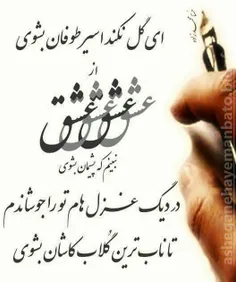 ای گل نکند اسیر طوفان بشوی
از
عشق عشق عشق
نبینم که پشیمان بشوی
در دیگ غزل هام تو را جوشاندم
تا ناب ترین گلاب کاشان بشوی
asheganehayemanbato.bl